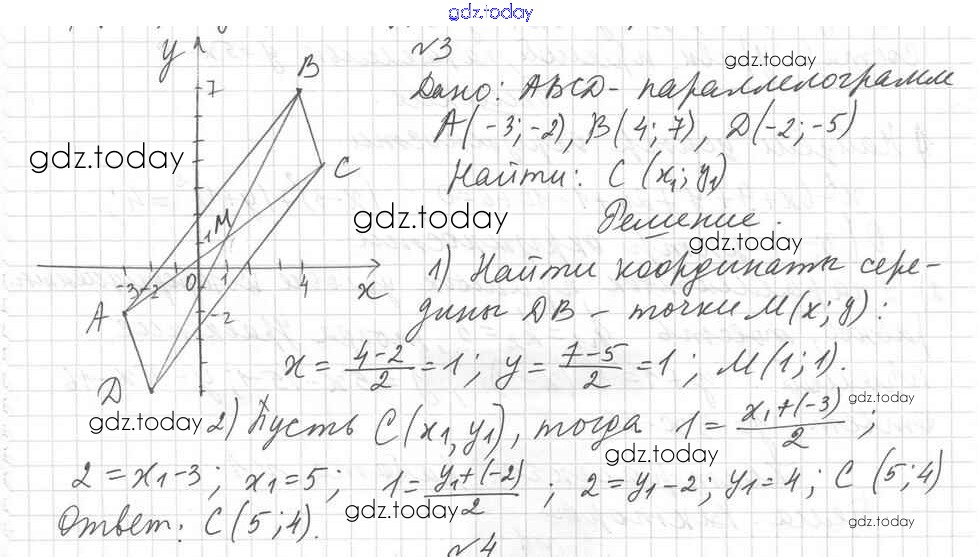 gdz.today
№3
gdz.today
Дано: ABCD - параллелограмм
A(-3;-2), B(4; 7), D(-2;-5)
gdz.today
Найти: C (x₁; y₁)
gdz.today
Решение.
gdz.today
y
B
7
C
M
1
-3 -2 0 1 4 x
A
-2
D
1) Найти координаты сере-
дины DB - точки M(x; y):
x = (4-2)/2 = 1; y = (7-5)/2 = 1; M(1; 1).
gdz.today
gdz.today
2) Пусть C(x₁, y₁), тогда 1 = (x₁+(-3))/2;
gdz.today
2 = x₁-3; x₁=5; 1 = (y₁+(-2))/2; 2 = y₁-2; y₁=4; C (5;4)
gdz.today
gdz.today
Ответ: C(5;4).
№4